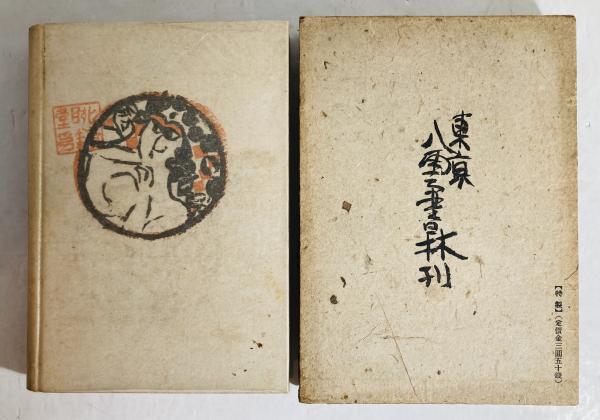 東京
八雲書林刊
【特製】（定価金三圓五十錢）